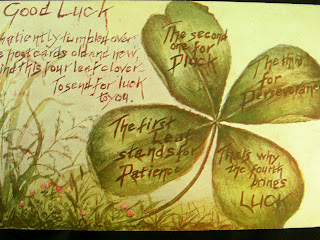 Good Luck
patiently tumbled over
postcards old and new,
find this four leaf clover
To send for luck
to you.
The first
Leaf
stands for
Patience
The second
one for
Pluck
The third
for
Perseverance
That's why
the fourth
brings
LUCK